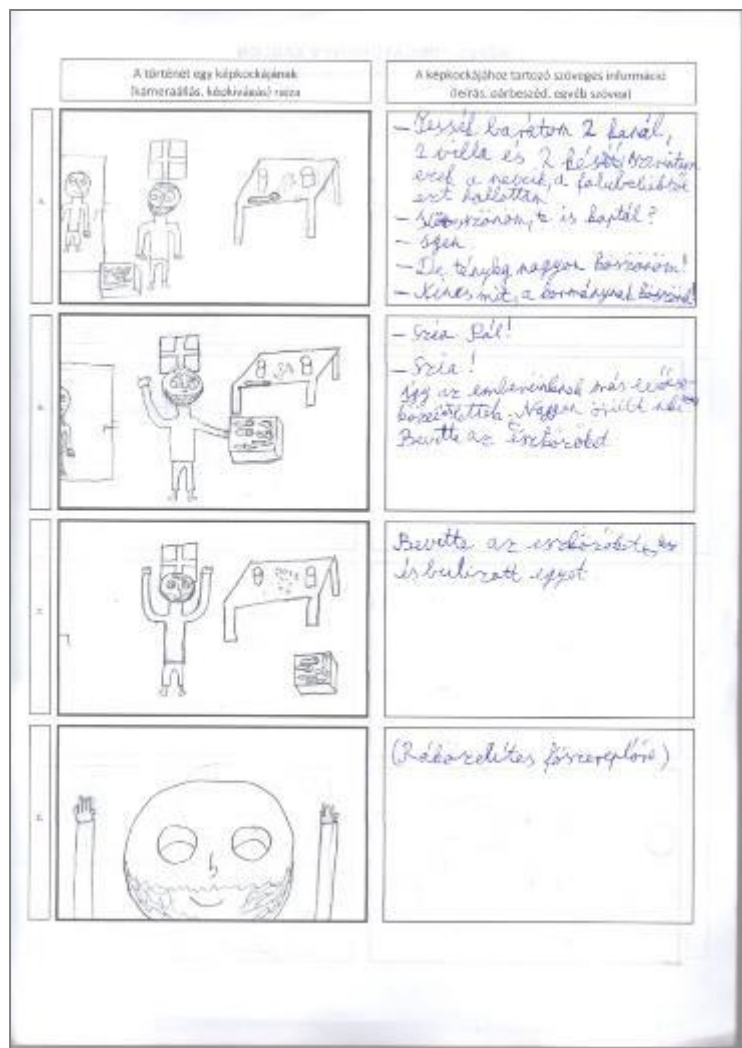 A történet egy képkockájának
(kameraállás, képkivágás) rajza
A képkockájához tartozó szöveges információ
(leírás, párbeszéd, egyéb szöveg)
– Tessék barátom 2 kanál,
2 villa és 2 kés
ezek a nevük, a falubeliektől
ezt hallottam
– te is kaptál?
– Igen
– De tényleg nagyon köszönöm!
– Nincs mit, a kormánynak köszönd!
– Szia Pál!
– Szia!
Így az embereinknek már
Nagyon örült neki
Bevitte az eszközöket
Bevitte az eszközöket,
és bulizott egyet
(Ráközelítés főszereplőre)